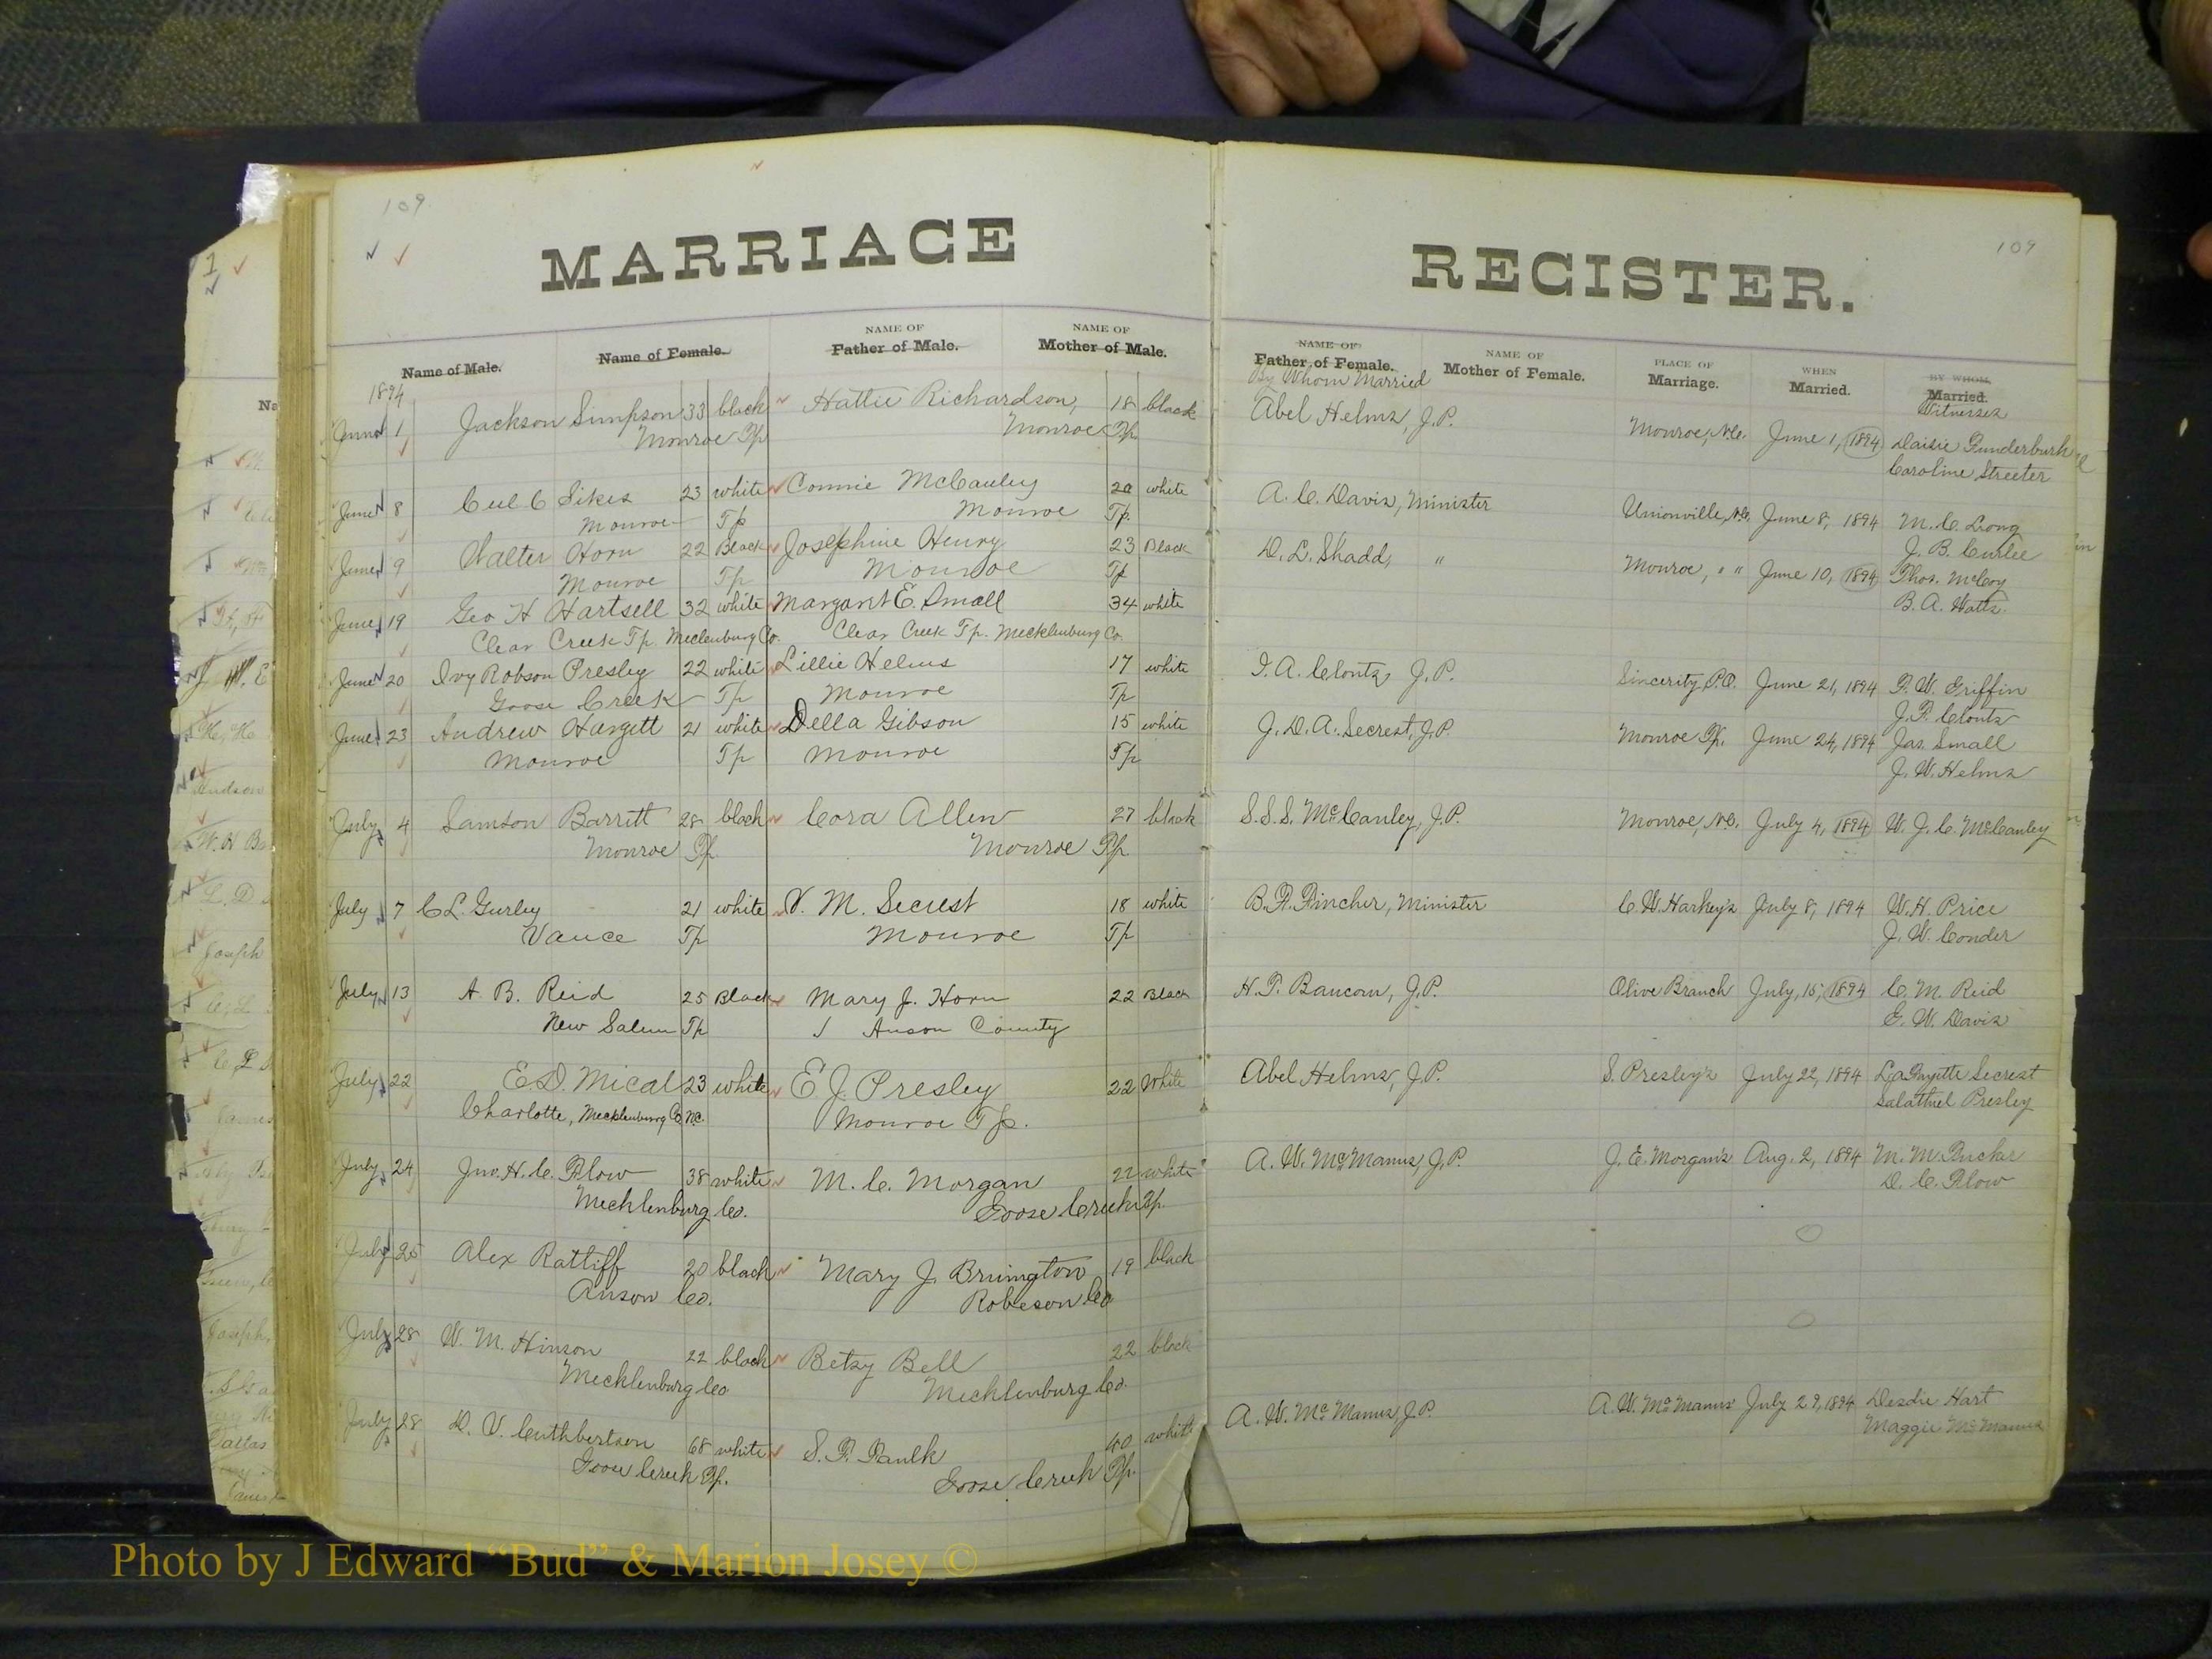 109
109
MARRIAGE REGISTER.
Name of Male.
Name of Female.
NAME OF
Father of Male.
NAME OF
Mother of Male.
NAME OF
Father of Female.
By Whom Married
NAME OF
Mother of Female.
PLACE OF
Marriage.
WHEN
Married.
BY WHOM
Married.
Witnesses
1894
June 1 Jackson Simpson 33 black Hattie Richardson, 18 black Abel Helms, J.P. Monroe, N.C. June 1, 1894 Daisie Funderburk
Monroe Tp. Monroe Tp. Caroline Streeter
June 8 Cul C Sikes 23 white Connie McCauley 20 white A. C. Davis, Minister Unionville, N.C. June 8, 1894 M. C. Long
Monroe Tp Monroe Tp. J. B. Curlee
June 9 Walter Horn 22 Black Josephine Henry 23 Black D. L. Shadd, " Monroe, " " June 10, 1894 Thos. McCoy
Monroe Tp Monroe Tp B. A. Watts
June 19 Geo H Hartsell 32 white Margaret E. Small 34 white
Clear Creek Tp. Meclenburg Co. Clear Creek Tp. Mecklenburg Co.
June 20 Ivy Robson Presley 22 white Lillie Helms 17 white I. A. Clontz, J.P. Sincerity P.O. June 21, 1894 P. W. Griffin
Goose Creek Tp Monroe Tp J. F. Clontz
June 23 Andrew Hargett 21 white Della Gibson 15 white J. D. A. Secrest, J.P. Monroe Tp. June 24, 1894 Jas. Small
Monroe Tp Monroe Tp J. W. Helms
July 4 Samson Barrett 28 black Cora Allen 27 black S. S. S. McCauley, J.P. Monroe, N.C. July 4, 1894 W. J. C. McCauley
Monroe Tp Monroe Tp.
July 7 C L. Gurley 21 white V. M. Secrest 18 white B. F. Fincher, Minister C. W. Harkey's July 8, 1894 W. H. Price
Vance Tp Monroe Tp J. W. Conder
July 13 A. B. Reid 25 Black Mary J. Horn 22 Black H. T. Baucom, J.P. Olive Branch July, 15, 1894 C. M. Reid
New Salem Tp Anson County E. W. Davis
July 22 E. D. Mical 23 white E J. Presley 22 White Abel Helms, J.P. S. Presley's July 22, 1894 LaFayette Secrest
Charlotte, Mecklenburg Co N.C. Monroe Tp. Salathiel Presley
July 24 Jno. H. C. Plow 38 white M. C. Morgan 22 white A. W. McManus, J.P. J. E. Morgan's Aug. 2, 1894 M. M. Rucker
Mecklenburg Co. Goose Creek Tp. D. C. Plow
July 25 Alex Ratliff 20 black Mary J. Brimington 19 black
Anson Co. Robeson Co
July 28 W. M. Hinson 22 black Betsy Bell 22 black
Mecklenburg Co Mecklenburg Co.
July 28 D. V. Cuthbertson 68 white S. F. Faulk 40 white A. W. McManus, J.P. A. W. McManus' July 29, 1894 Dezdie Hart
Goose Creek Tp. Goose Creek Tp. Maggie McManus
Photo by J Edward “Bud” & Marion Josey ©